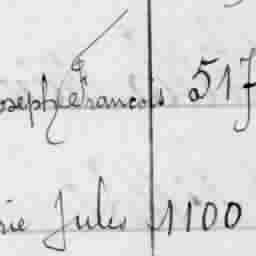 oseph François 517
rie Jules 1100